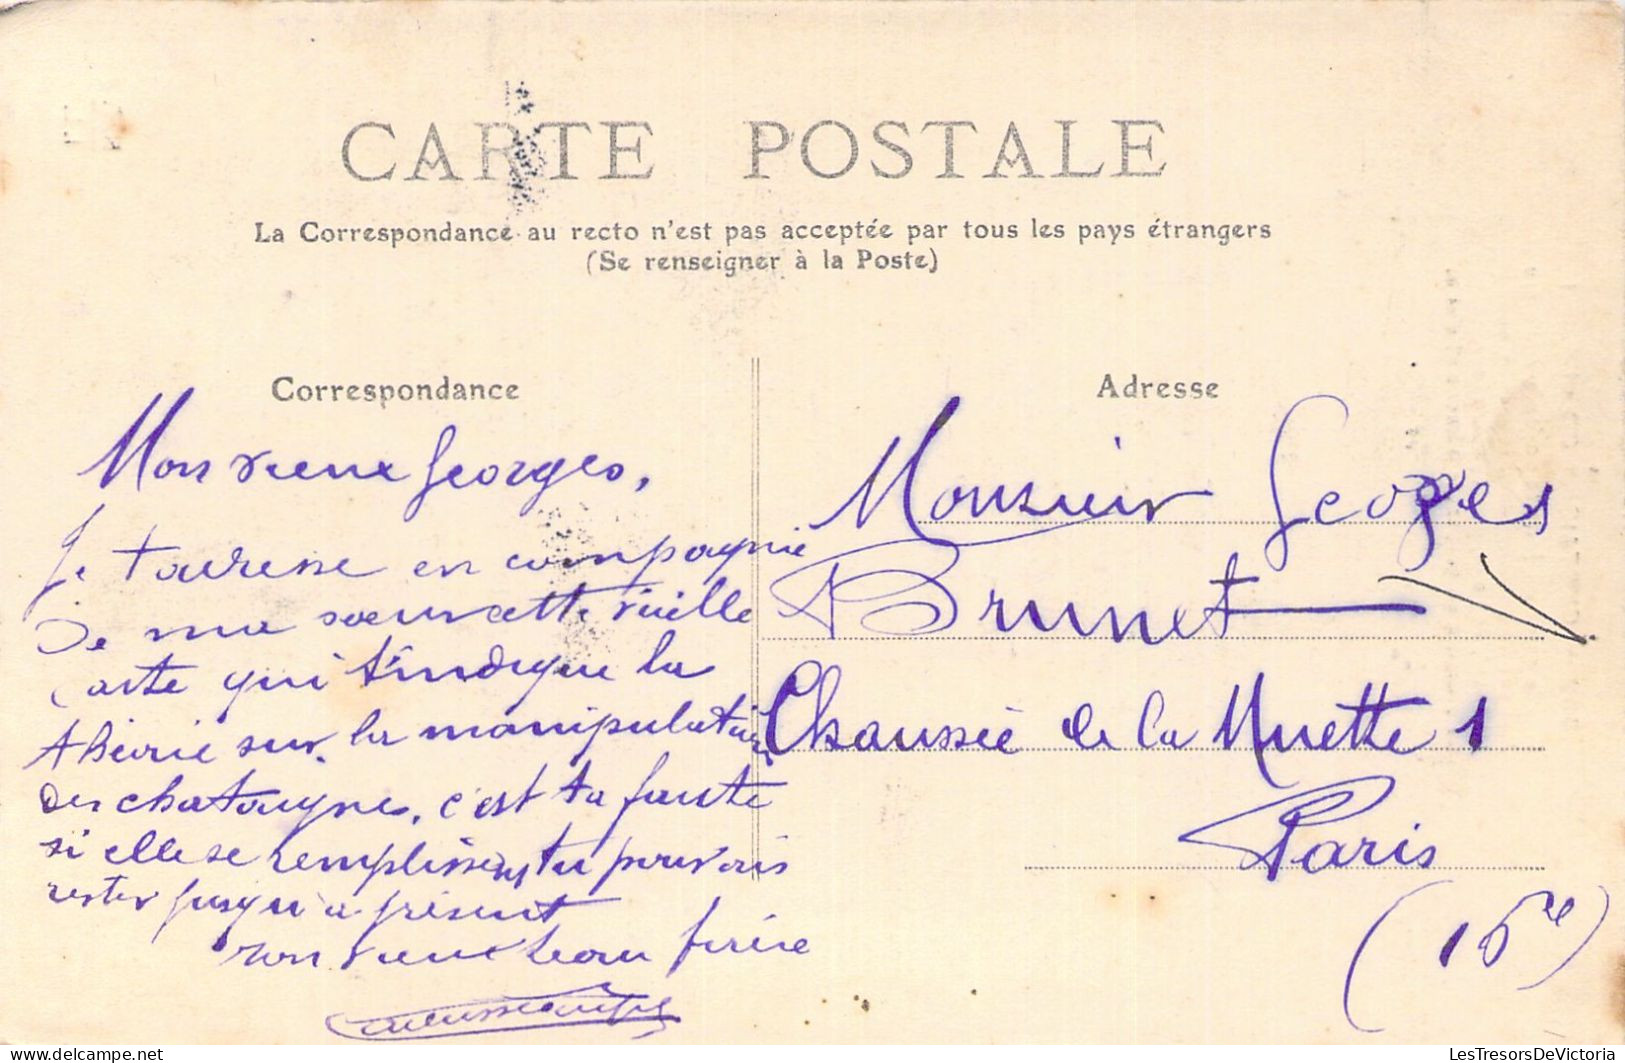 CARTE POSTALE
La Correspondance au recto n'est pas acceptée par tous les pays étrangers
(Se renseigner à la Poste)
Correspondance
Mon vieux Georges,
Je t'adresse en compagnie
de ma soeur cette vieille
carte qui t'indique la
théorie sur la manipulation
des chataignes, c'est ta faute
si elle se remplissent, tu pouvais
rester jusqu'à présent
ton vieux beau frère
Adresse
Monsieur Georges
Brunet
Chaussée de la Muette 1
Paris
(16e)
LesTresorsDeVictoria.delcampe.net
LesTresorsDeVictoria